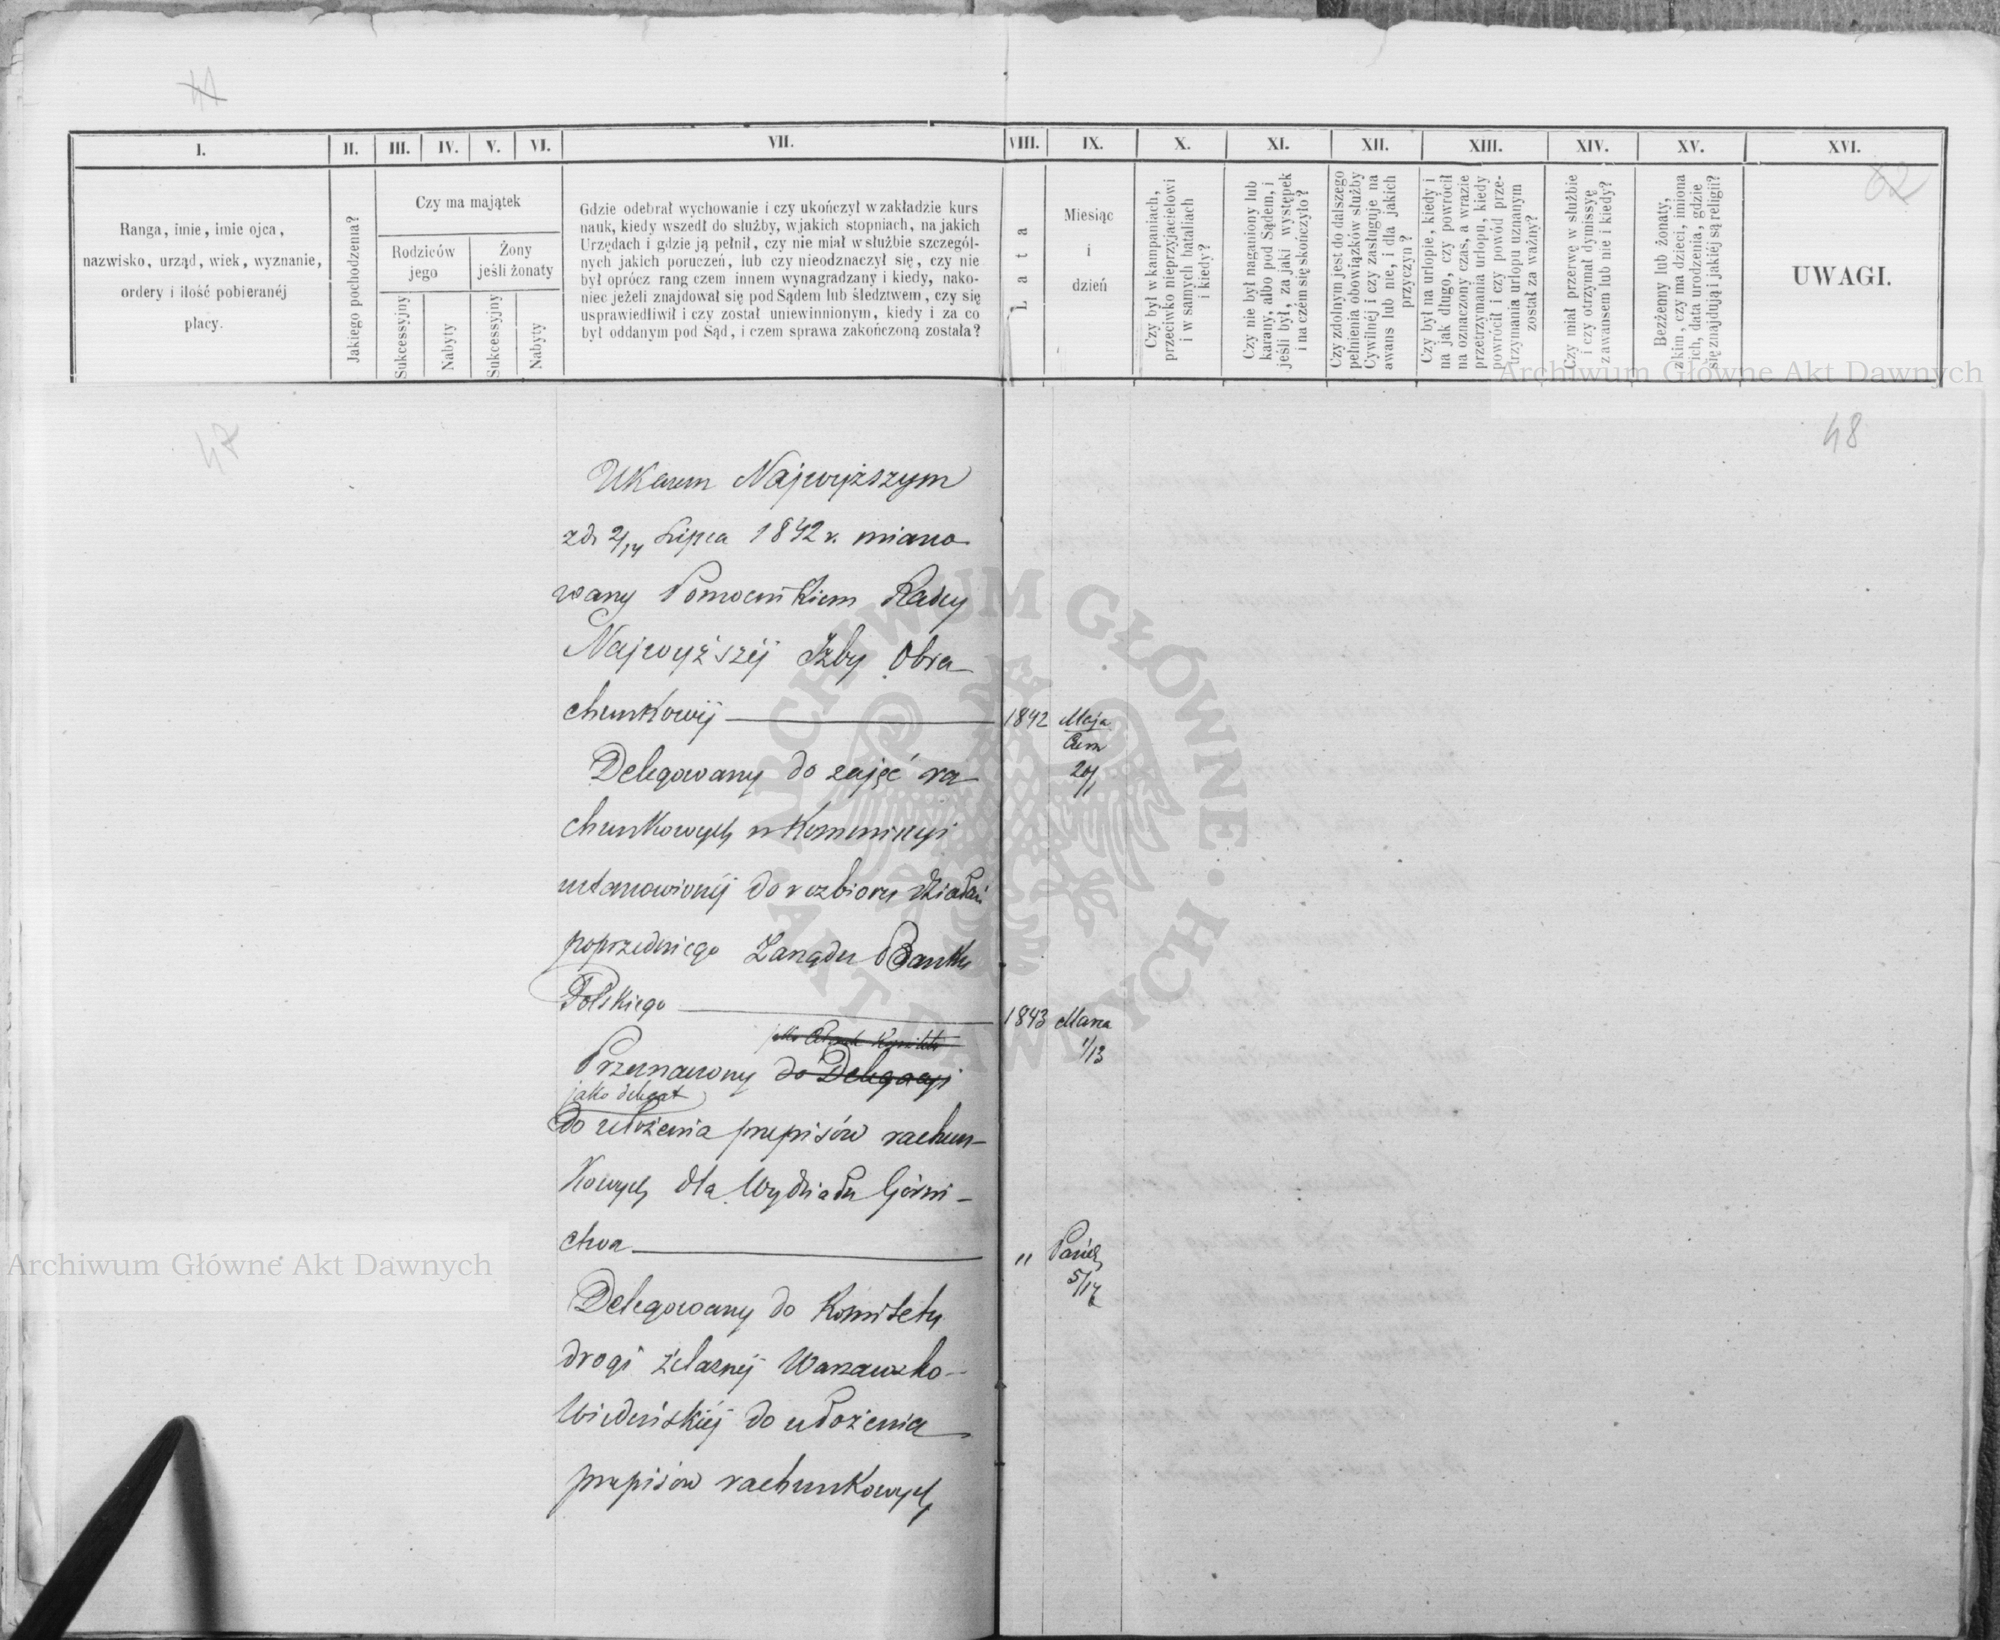 41
I.
II.
III.
IV.
V.
VI.
VII.
VIII.
IX.
X.
XI.
XII.
XIII.
XIV.
XV.
XVI.
62
Ranga, imie, imie ojca,
nazwisko, urząd, wiek, wyznanie,
ordery i ilość pobieranéj
płacy.
Jakiego pochodzenia?
Czy ma majątek
Rodziców
jego
Żony
jeśli żonaty
Sukcessyjny
Nabyty
Sukcessyjny
Nabyty
Gdzie odebrał wychowanie i czy ukończył w zakładzie kurs
nauk, kiedy wszedł do służby, w jakich stopniach, na jakich
Urzędach i gdzie ją pełnił, czy nie miał w służbie szczegól-
nych jakich poruczeń, lub czy nieodznaczył się, czy nie
był oprócz rang czem innem wynagradzany i kiedy, nako-
niec jeżeli znajdował się pod Sądem lub śledztwem, czy się
usprawiedliwił i czy został uniewinnionym, kiedy i za co
był oddanym pod Sąd, i czem sprawa zakończoną została?
Lata
Miesiąc
i
dzień
Czy był w kampaniach,
przeciwko nieprzyjacielowi
i w samych bataliach
i kiedy?
Czy nie był naganiony lub
karany, albo pod Sądem, i
jeśli był, za jaki występek
i na czém się skończyło?
Czy zdolnym jest do dalszego
pełnienia obowiązków służby
Cywilnéj i czy zasługuje na
awans lub nie, i dla jakich
przyczyn?
Czy był na urlopie, kiedy i
na jak długo, czy powrócił
na oznaczony czas, a w razie
przetrzymania urlopu, kiedy
powrócił i czy powód prze-
trzymania urlopu uznanym
został za ważny?
Czy miał przerwę w służbie
i czy otrzymał dymissyę
z awansem lub nie i kiedy?
Bezżenny lub żonaty,
z kim, czy ma dzieci, imiona
ich, data urodzenia, gdzie
się znajdują i jakiéj są religii?
UWAGI.
Archiwum Główne Akt Dawnych
47
48
Ukazem Najwyższym
zd. 2/14 Lipca 1842 r. miano
wany Pomocnikiem Radcy
Najwyższéj Izby Obra
chunkowéj
1842 Maja
Czer
20/1
Delegowany do zajęć ra
chunkowych w Kommissyi
ustanowionéj do rozbioru działań
poprzedniego Zarządu Banku
Polskiego
1843 Marca
1/13
Przeznaczony do Delegacyi
jako delegat
do ułożenia przepisów rachun-
kowych dla Wydziału Górni-
ctwa
" Paźdz
5/17
Delegowany do Komitetu
drogi żelaznéj Warszawsko-
Wiedeńskiéj do ułożenia
przepisów rachunkowych
ARCHIWUM GŁÓWNE AKT DAWNYCH
Archiwum Główne Akt Dawnych